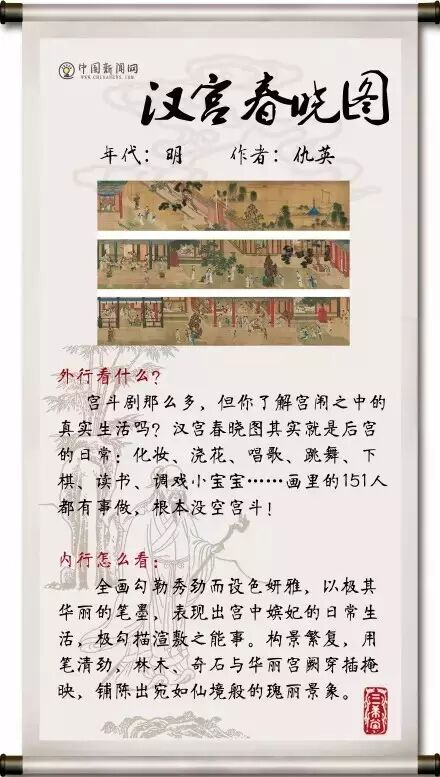 中国新闻网
WWW.CHINANEWS.COM
汉宫春晓图
年代：明 作者：仇英
外行看什么？
宫斗剧那么多，但你了解宫闱之中的
真实生活吗？汉宫春晓图其实就是后宫
的日常：化妆、浇花、唱歌、跳舞、下
棋、读书、调戏小宝宝……画里的151人
都有事做，根本没空宫斗！
内行怎么看：
全画勾勒秀劲而设色妍雅，以极其
华丽的笔墨，表现出宫中嫔妃的日常生
活，极勾描渲敷之能事。构景繁复，用
笔清劲，林木、奇石与华丽宫阙穿插掩
映，铺陈出宛如仙境般的瑰丽景象。